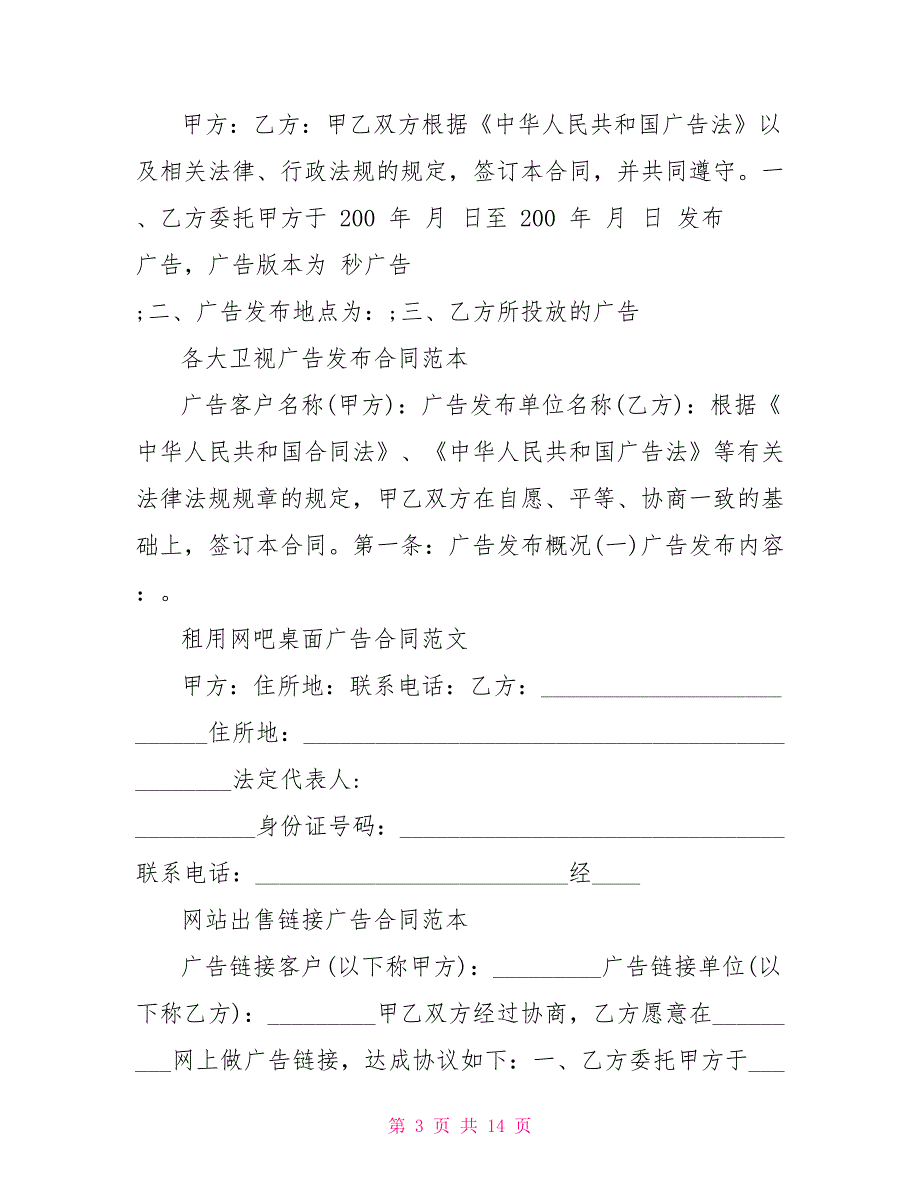 甲方：乙方：甲乙双方根据《中华人民共和国广告法》以
及相关法律、行政法规的规定，签订本合同，并共同遵守。一
、乙方委托甲方于 200 年 月 日至 200 年 月 日 发布
广告，广告版本为 秒广告
;二、广告发布地点为：;三、乙方所投放的广告
各大卫视广告发布合同范本
广告客户名称(甲方)：广告发布单位名称(乙方)：根据《
中华人民共和国合同法》、《中华人民共和国广告法》等有关
法律法规规章的规定，甲乙双方在自愿、平等、协商一致的基
础上，签订本合同。第一条：广告发布概况(一)广告发布内容
：。
租用网吧桌面广告合同范文
甲方：住所地：联系电话：乙方：____________________
______住所地：________________________________________
________法定代表人:
__________身份证号码：________________________________
联系电话：__________________________经____
网站出售链接广告合同范本
广告链接客户(以下称甲方)：_________广告链接单位(以
下称乙方)：_________甲乙双方经过协商，乙方愿意在______
___网上做广告链接，达成协议如下：一、乙方委托甲方于___
第 3 页 共 14 页